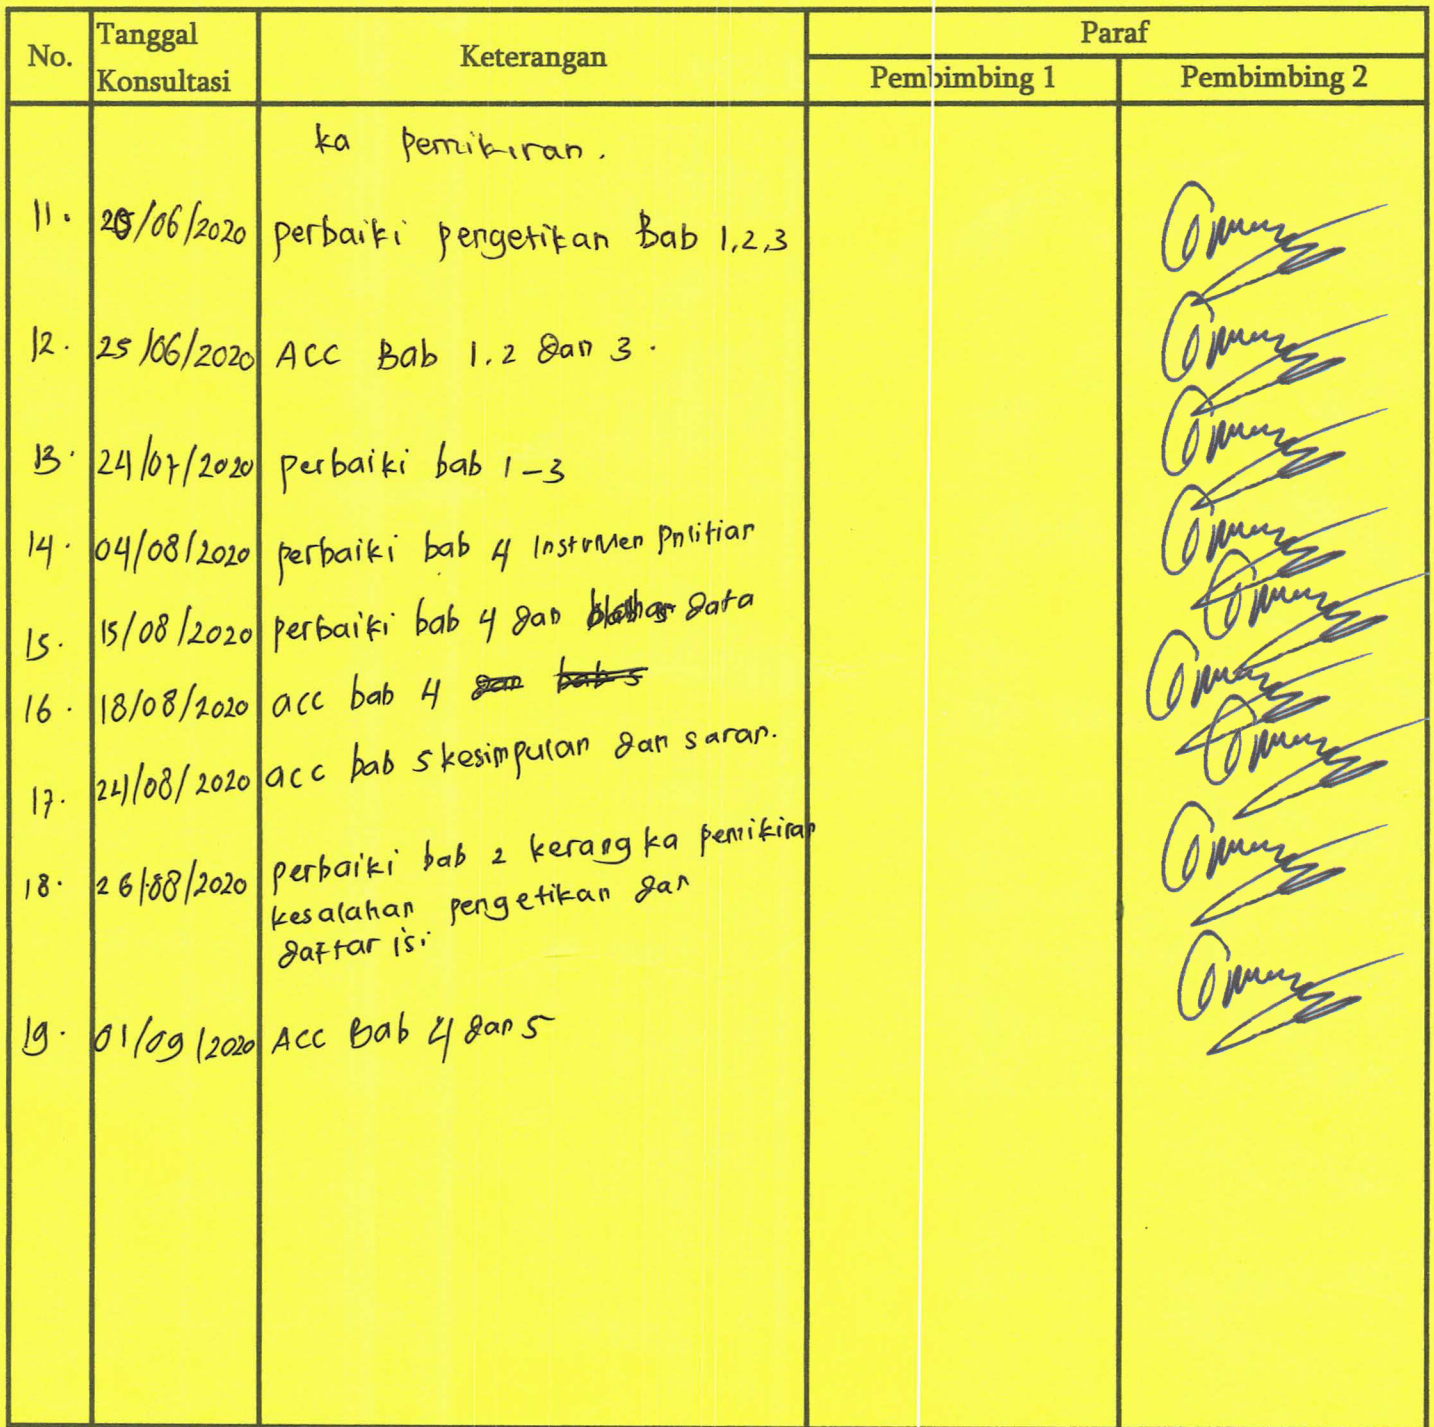 No. Tanggal Konsultasi Keterangan Paraf
Pembimbing 1 Pembimbing 2
ka pemikiran.
11. /06/2020 perbaiki pengetikan Bab 1,2,3
12. 25/06/2020 ACC Bab 1.2 dan 3.
13. 24/07/2020 perbaiki bab 1-3
14. 04/08/2020 perbaiki bab 4 Instrumen Pnlitian
15. 15/08/2020 perbaiki bab 4 dan data
16. 18/08/2020 acc bab 4 dan bab 5
17. 24/08/2020 acc bab 5 kesimpulan dan saran.
18. 26/08/2020 perbaiki bab 2 kerangka pemikiran
kesalahan pengetikan dan
daftar isi
19. 01/09/2020 ACC Bab 4 dan 5